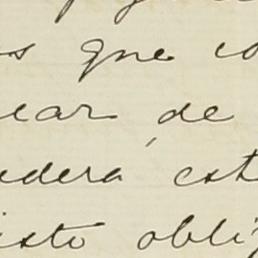 s que co
ear de
edera est
isto obli